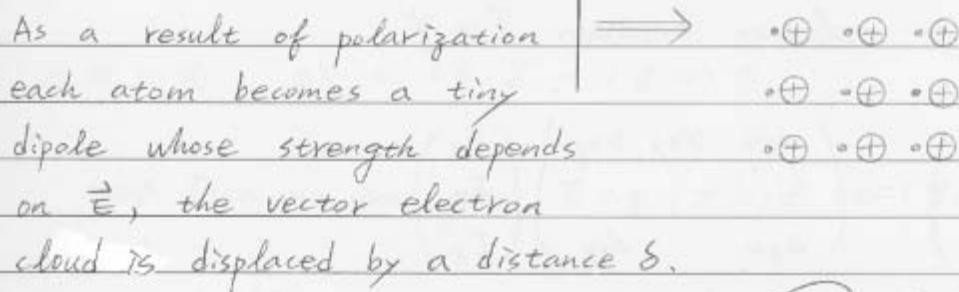 As a result of polarization
each atom becomes a tiny
dipole whose strength depends
on E⃗, the vector electron
cloud is displaced by a distance δ.